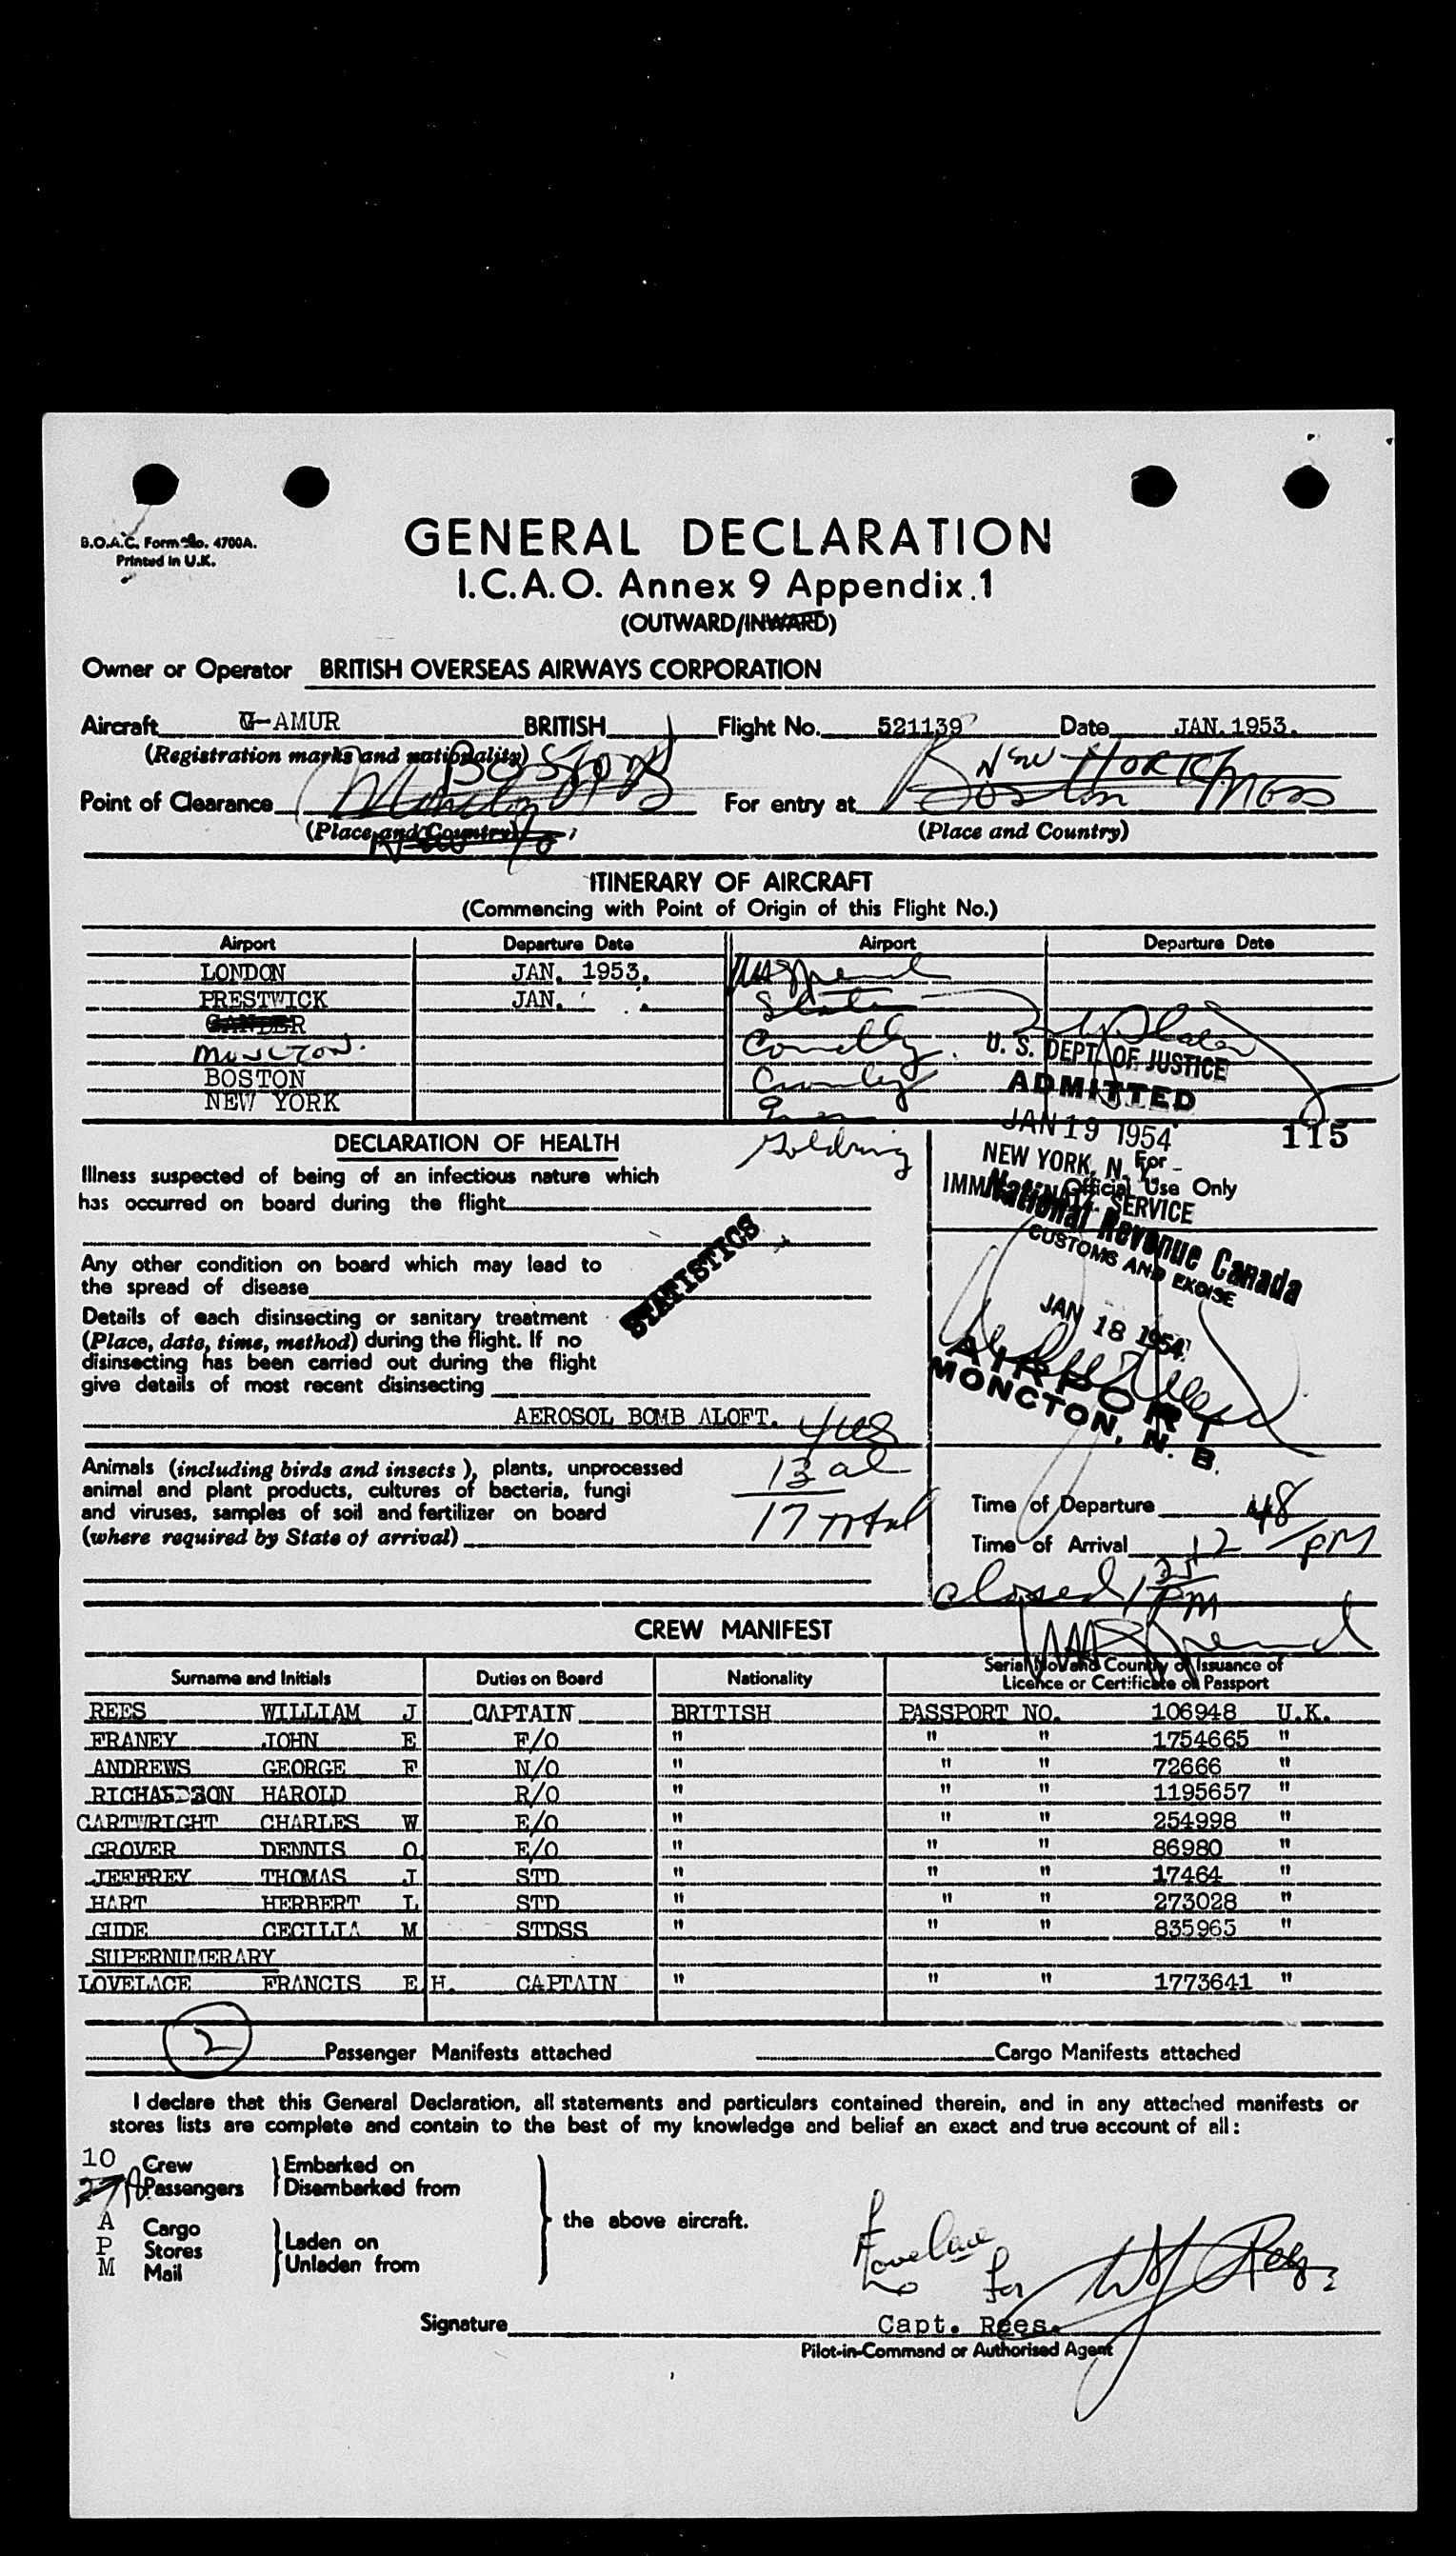 B.O.A.C. Form No. 4700A.
Printed in U.K.
GENERAL DECLARATION
I.C.A.O. Annex 9 Appendix 1
(OUTWARD/INWARD)
Owner or Operator BRITISH OVERSEAS AIRWAYS CORPORATION
Aircraft G-AMUR BRITISH Flight No. 521139 Date JAN. 1953.
(Registration marks and nationality)
Boston New York
Point of Clearance Moncton NB For entry at Boston Mass
(Place and Country) (Place and Country)
ITINERARY OF AIRCRAFT
(Commencing with Point of Origin of this Flight No.)
Airport Departure Date Airport Departure Date
LONDON JAN. 1953.
PRESTWICK JAN.
GANDER
MONCTON.
Connelly
BOSTON
Crowley
NEW YORK
Goldring
U. S. DEPT. OF JUSTICE
ADMITTED
JAN 19 1954
115
NEW YORK, N. Y.
For
Official Use Only
SERVICE
National Revenue Canada
CUSTOMS AND EXCISE
JAN 18 1954
AIRPORT
MONCTON, N. B.
DECLARATION OF HEALTH
Illness suspected of being of an infectious nature which
has occurred on board during the flight
Any other condition on board which may lead to
the spread of disease
STATISTICS
Details of each disinsecting or sanitary treatment
(Place, date, time, method) during the flight. If no
disinsecting has been carried out during the flight
give details of most recent disinsecting
AEROSOL BOMB ALOFT. yes
13 al
17 total
Animals (including birds and insects), plants, unprocessed
animal and plant products, cultures of bacteria, fungi
and viruses, samples of soil and fertilizer on board
(where required by State of arrival)
Time of Departure 48
Time of Arrival 12 PM
closed 1 25 PM
CREW MANIFEST
Surname and Initials Duties on Board Nationality Serial No. and Country of Issuance of
Licence or Certificate or Passport
REES WILLIAM J CAPTAIN BRITISH PASSPORT NO. 106948 U.K.
FRANEY JOHN E F/O " " " 1754665 "
ANDREWS GEORGE F N/O " " " 72666 "
RICHARDSON HAROLD R/O " " " 1195657 "
CARTWRIGHT CHARLES W E/O " " " 254998 "
GROVER DENNIS O E/O " " " 86980 "
JEFFREY THOMAS J STD " " " 17464 "
HART HERBERT L STD " " " 273028 "
GUDE CECILIA M STDSS " " " 835965 "
SUPERNUMERARY
LOVELACE FRANCIS E H. CAPTAIN " " " 1773641 "
2 Passenger Manifests attached Cargo Manifests attached
I declare that this General Declaration, all statements and particulars contained therein, and in any attached manifests or
stores lists are complete and contain to the best of my knowledge and belief an exact and true account of all:
10 Crew Embarked on
Passengers Disembarked from
the above aircraft.
A Cargo Laden on
P Stores Unladen from
M Mail
Lovelace for WJ Rees
Signature Capt. Rees.
Pilot-in-Command or Authorised Agent